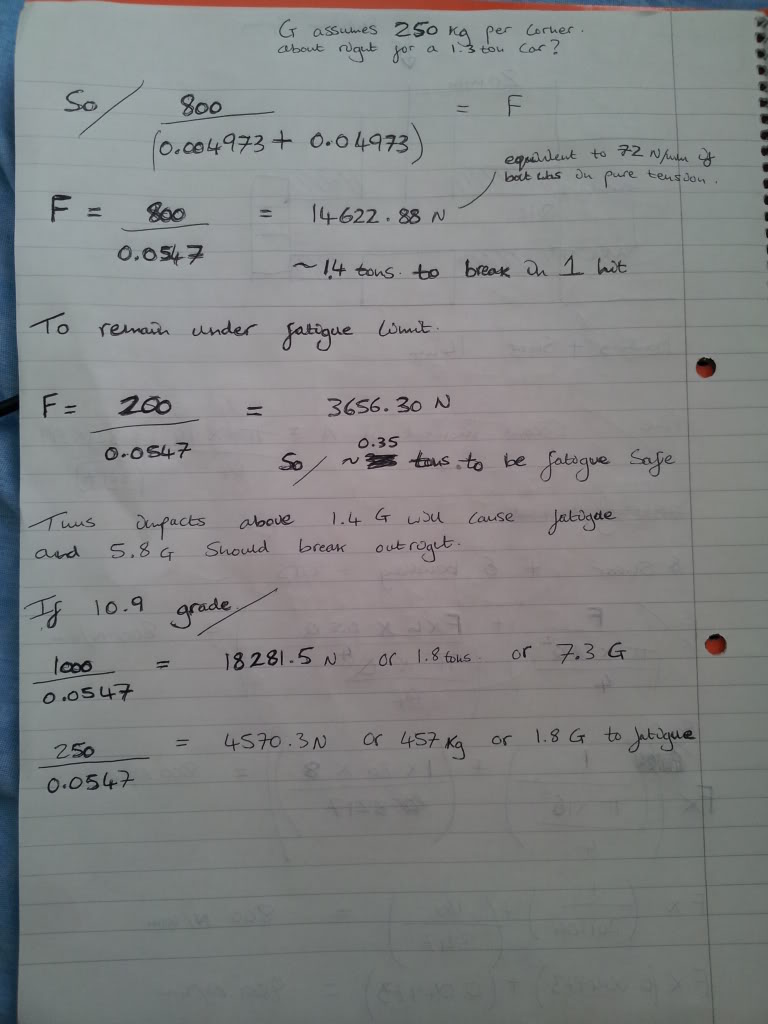 G assumes 250 Kg per corner.
about right for a 1.3 ton car?
So / 800 / (0.004973 + 0.04973) = F
equivelent to 72 N/mm if
bolt was in pure tension.
F = 800 / 0.0547 = 14622.88 N
~ 1.4 tons. to break in 1 hit
To remain under fatigue limit.
F = 200 / 0.0547 = 3656.30 N
So / ~ 0.35 tons. to be fatigue safe
Thus impacts above 1.4 G will cause fatigue
and 5.8 G should break outright.
If 10.9 grade.
1000 / 0.0547 = 18281.5 N or 1.8 tons. or 7.3 G
250 / 0.0547 = 4570.3 N or 457 Kg or 1.8 G to fatigue